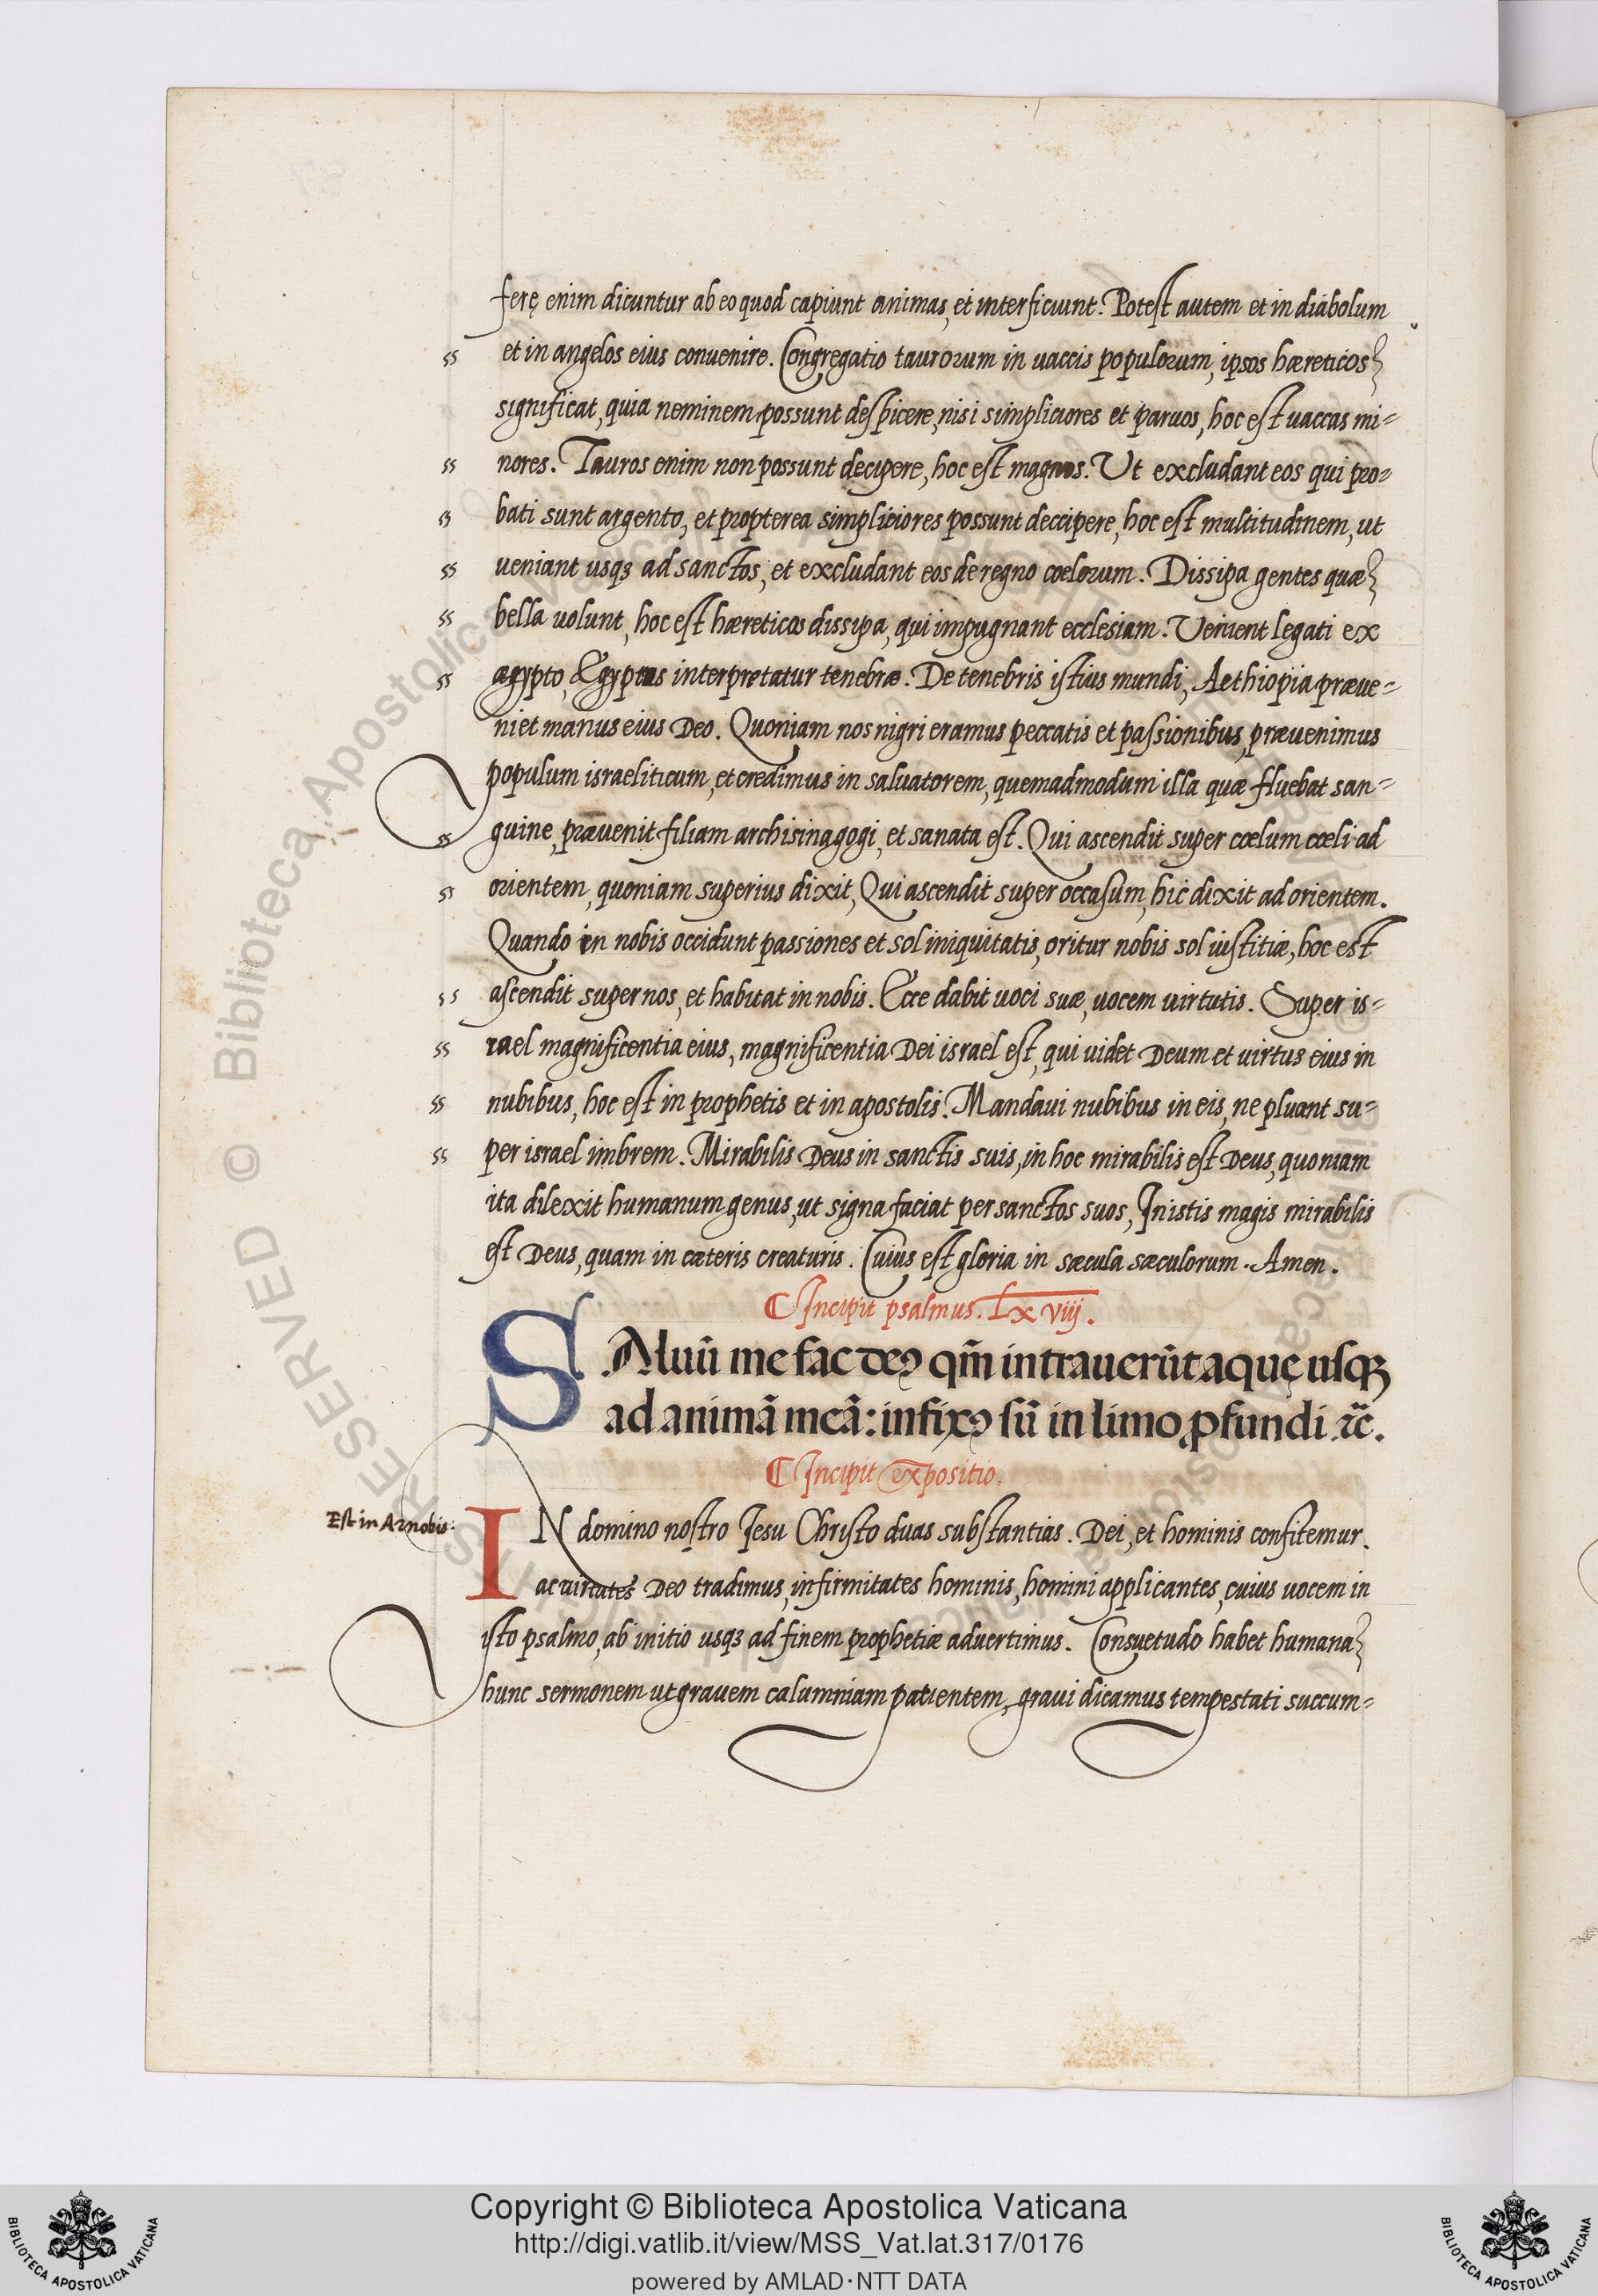 ferę enim dicuntur ab eo quod capiunt animas, et interficiunt. Potest autem et in diabolum
ss et in angelos eius convenire. Congregatio taurorum in vaccis populorum, ipsos hæreticos
significat, quia neminem possunt despicere, nisi simpliciores et parvos, hoc est vaccas mi-
ss nores. Tauros enim non possunt decipere, hoc est magnos. Ut excludant eos qui pro-
ss bati sunt argento, et propterea simpliciores possunt deccipere, hoc est multitudinem, ut
ss veniant usqꝫ ad sanctos, et excludant eos de regno cœlorum. Dissipa gentes quæ
ss bella volunt, hoc est hæreticos dissipa, qui impugnant ecclesiam. Venient legati ex
ss ægypto, Ægyptus interpretatur tenebræ. De tenebris istius mundi, Aethiopia præve-
niet manus eius Deo. Quoniam nos nigri eramus peccatis et passionibus, prævenimus
populum israeliticum, et credimus in salvatorem, quemadmodum illa quæ fluebat san-
ss guine, prævenit filiam archisinagogi, et sanata est. Qui ascendit super cœlum cœli ad
ss orientem, quoniam superius dixit, Qui ascendit super occasum, hic dixit ad orientem.
Quando in nobis occidunt passiones et sol iniquitatis, oritur nobis sol iustitiæ, hoc est
ss ascendit super nos, et habitat in nobis. Ecce dabit voci suæ, vocem virtutis. Super is-
ss rael magnificentia eius, magnificentia Dei israel est, qui videt Deum et virtus eius in
ss nubibus, hoc est in prophetis et in apostolis. Mandavi nubibus in eis, ne pluant su-
ss per israel imbrem. Mirabilis Deus in sanctis suis, in hoc mirabilis est Deus, quoniam
ita dilexit humanum genus, ut signa faciat per sanctos suos, In istis magis mirabilis
est Deus, quam in cæteris creaturis. Cuius est gloria in sæcula sæculorum. Amen.
Incipit psalmus. Lxviij.
SAluū me fac deꝰ qm̄ intrauerūt aquę usqꝫ
ad animā meā: infixꝰ sū in limo ꝓfundi ⁊c̄.
Incipit expositio.
Est in Arnobis.
IN domino nostro Jesu Christo duas substantias. Dei, et hominis confitemur.
ac virtutes Deo tradimus, infirmitates hominis, homini applicantes, cuius vocem in
isto psalmo, ab initio usqꝫ ad finem prophetiæ advertimus. Consuetudo habet humana
hunc sermonem ut gravem calumniam patientem, gravi dicamus tempestati succum-
Copyright © Biblioteca Apostolica Vaticana
http://digi.vatlib.it/view/MSS_Vat.lat.317/0176
powered by AMLAD·NTT DATA
BIBLIOTECA APOSTOLICA VATICANA
BIBLIOTECA APOSTOLICA VATICANA